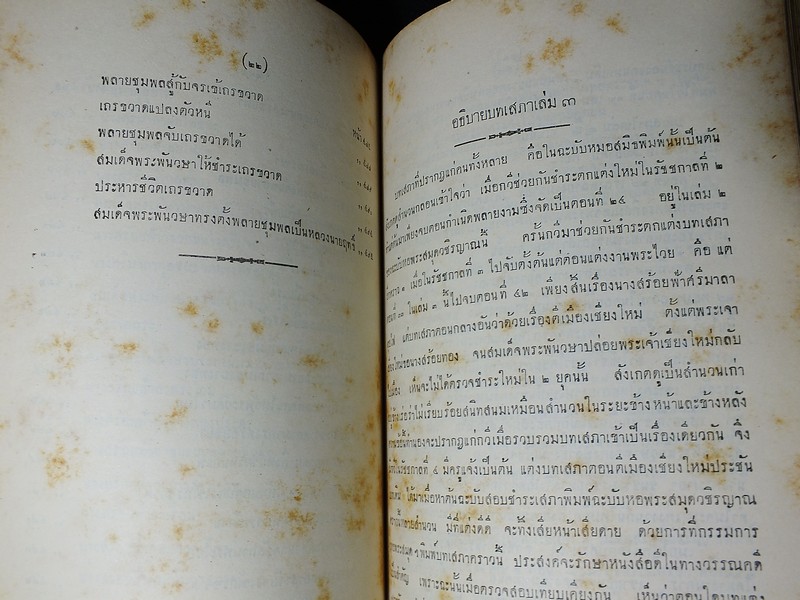 (๒๒)
พลายชุมพลสู้กับจรเข้เถรขวาด
เถรขวาดแปลงตัวหนี
พลายชุมพลจับเถรขวาดได้
สมเด็จพระพันวษาให้ชำระเถรขวาด
ประหารชีวิตเถรขวาด
สมเด็จพระพันวษาทรงตั้งพลายชุมพลเป็นหลวงนายฤทธิ์
อธิบายบทเสภาเล่ม ๓
บทเสภาที่ปรากฏแก่คนทั้งหลาย คือในฉะบับหมอสมิธพิมพ์นั้นเป็นต้น
สำนวนกลอนเข้าใจว่า เมื่อกวีช่วยกันชำระตกแต่งใหม่ในรัชชกาลที่ ๒
มาเพียงจบตอนกำเนิดพลายงามซึ่งจัดเป็นตอนที่ ๒๔ อยู่ในเล่ม ๒
ฉะบับหอพระสมุดวชิรญาณนี้ ครั้นกวีมาช่วยกันชำระตกแต่งบทเสภา
เมื่อในรัชชกาลที่ ๓ ไปจับตั้งต้นแต่ตอนแต่งงานพระไวย คือ แต่
ในเล่ม ๓ นี้ไปจบตอนที่ ๔๒ เพียงสิ้นเรื่องนางสร้อยฟ้าศรีมาลา
แต่บทเสภาตอนกลางอันว่าด้วยเรื่องตีเมืองเชียงใหม่ ตั้งแต่พระเจ้า
นางสร้อยทอง จนสมเด็จพระพันวษาปล่อยพระเจ้าเชียงใหม่กลับ
เห็นจะไม่ได้ตรวจชำระใหม่ใน ๒ ยุคนั้น สังเกตดูเป็นสำนวนเก่า
ไม่เรียบร้อยสนิทสนมเหมือนสำนวนในระยะข้างหน้าและข้างหลัง
จะปรากฏแก่กวีเมื่อรวบรวมบทเสภาเข้าเป็นเรื่องเดียวกัน จึง
รัชกาลที่ ๔ มีครูแจ้งเป็นต้น แต่งบทเสภาตอนตีเมืองเชียงใหม่ประชัน
ได้มาเมื่อหาต้นฉะบับสอบชำระเสภาพิมพ์ฉะบับหอพระสมุดวชิรญาณ
หลายสำนวน มีที่แต่งดีดี จะทิ้งเสียหน้าเสียดาย ด้วยการที่กรรมการ
หอพระสมุดฯพิมพ์บทเสภาคราวนี้ ประสงค์จะรักษาหนังสือดีในทางวรรณคดี
เพราะฉะนั้นเมื่อตรวจสอบเทียบเคียงกัน เห็นว่าตอนใดบทแต่ง